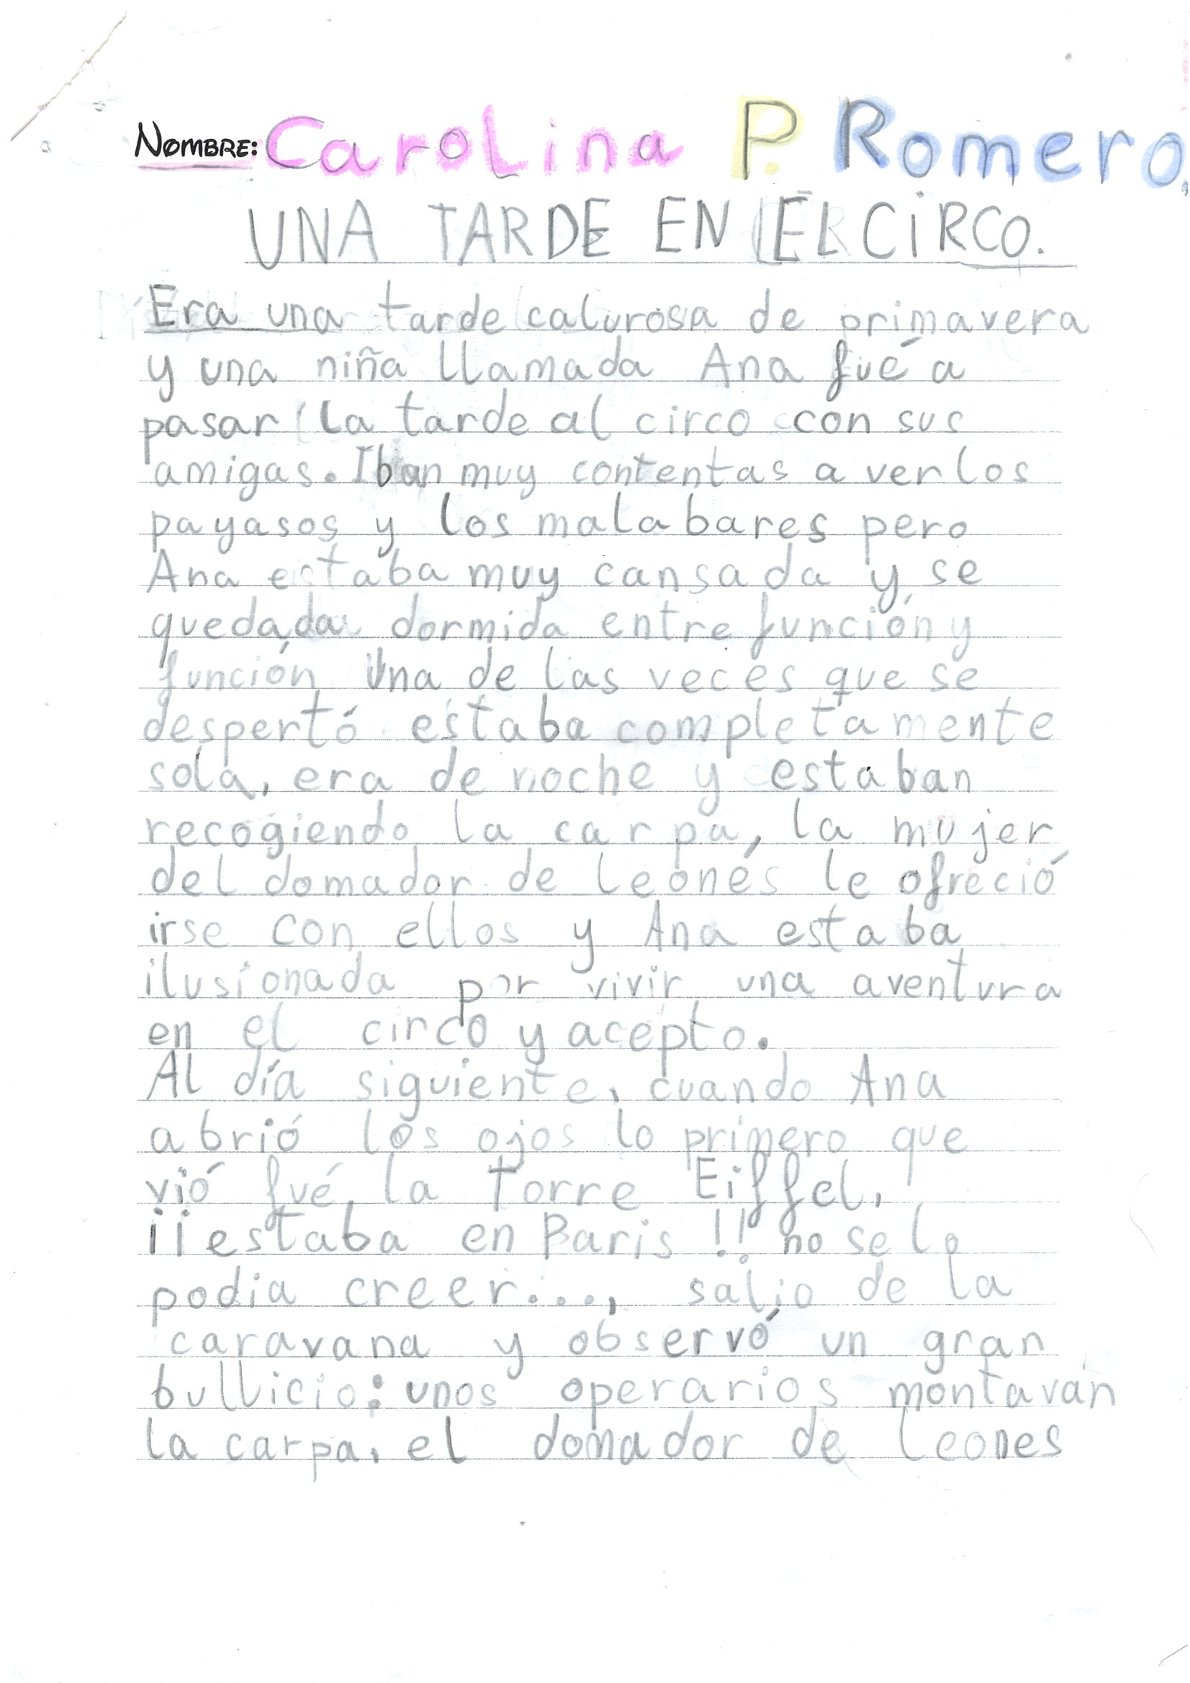 NOMBRE: Carolina P. Romero.
UNA TARDE EN EL CIRCO.
Era una tarde calurosa de primavera
y una niña llamada Ana fué a
pasar la tarde al circo con sus
amigas. Iban muy contentas a ver los
payasos y los malabares pero
Ana estaba muy cansada y se
quedada dormida entre función y
función Una de las veces que se
despertó estaba completamente
sola, era de noche y estaban
recogiendo la carpa, la mujer
del domador de leónes le ofreció
irse con ellos y Ana estaba
ilusionada por vivir una aventura
en el circo y acepto.
Al día siguiente, cuando Ana
abrió los ojos lo primero que
vió fué la Torre Eiffel,
¡¡estaba en Paris!! no se lo
podia creer..., salio de la
caravana y observó un gran
bullicio: unos operarios montavan
la carpa, el domador de leones